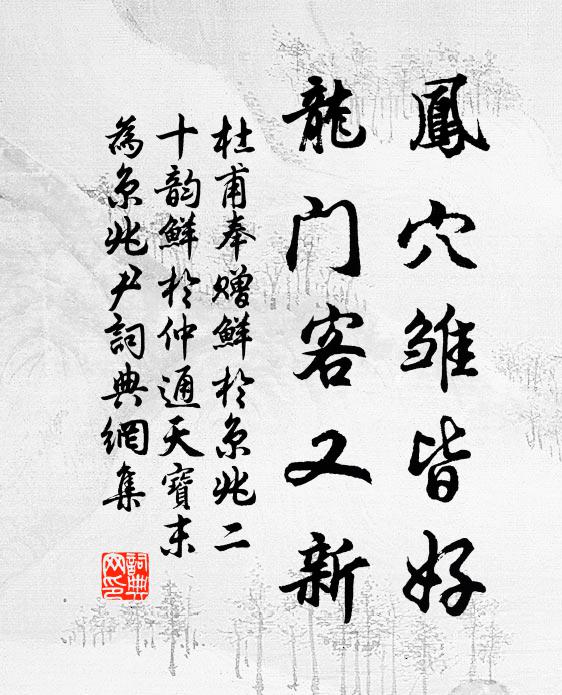 鳳穴雏皆好
龍门客又新
杜甫奉赠鮮於京兆二
十韵鮮於仲通天寶末
為京兆尹詞典網集
詞典
网印